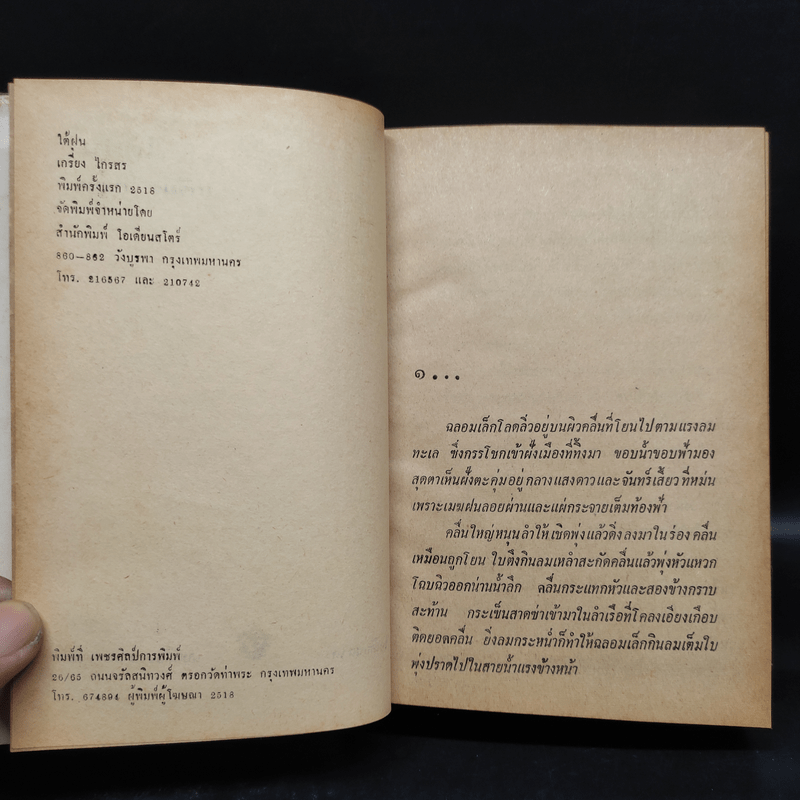 ใต้ฝุ่น
เกรียง ไกรสร
พิมพ์ครั้งแรก 2518
จัดพิมพ์จำหน่ายโดย
สำนักพิมพ์ โอเดียนสโตร์
860-862 วังบูรพา กรุงเทพมหานคร
โทร. 216567 และ 210742
พิมพ์ที่ เพชรศิลป์การพิมพ์
26/65 ถนนจรัลสนิทวงศ์ ตรอกวัดท่าพระ กรุงเทพมหานคร
โทร. 674894 ผู้พิมพ์ผู้โฆษณา 2518
๑ . . .
ฉลอมเล็กโลดลิ่วอยู่บนผิวคลื่นที่โยนไปตามแรงลม
ทะเล ซึ่งกรรโชกเข้าฝั่งเมืองที่ทิ้งมา ขอบน้ำขอบฟ้ามอง
สุดตาเห็นฝั่งตะคุ่มอยู่กลางแสงดาวและจันทร์เสี้ยวที่หม่น
เพราะเมฆฝนลอยผ่านและแผ่กระจายเต็มท้องฟ้า
คลื่นใหญ่หนุนลำให้เชิดพุ่งแล้วดิ่งลงมาในร่องคลื่น
เหมือนถูกโยน ใบตึงกินลมเหลำสะกัดคลื่นแล้วพุ่งหัวแหวก
โฉบฉิวออกน่านน้ำลึก คลื่นกระแทกหัวและสองข้างกราบ
สะท้าน กระเซ็นสาดซ่าเข้ามาในลำเรือที่โคลงเอียงเกือบ
ติดยอดคลื่น ยิ่งลมกระหน่ำก็ทำให้ฉลอมเล็กกินลมเต็มใบ
พุ่งปราดไปในสายน้ำแรงข้างหน้า